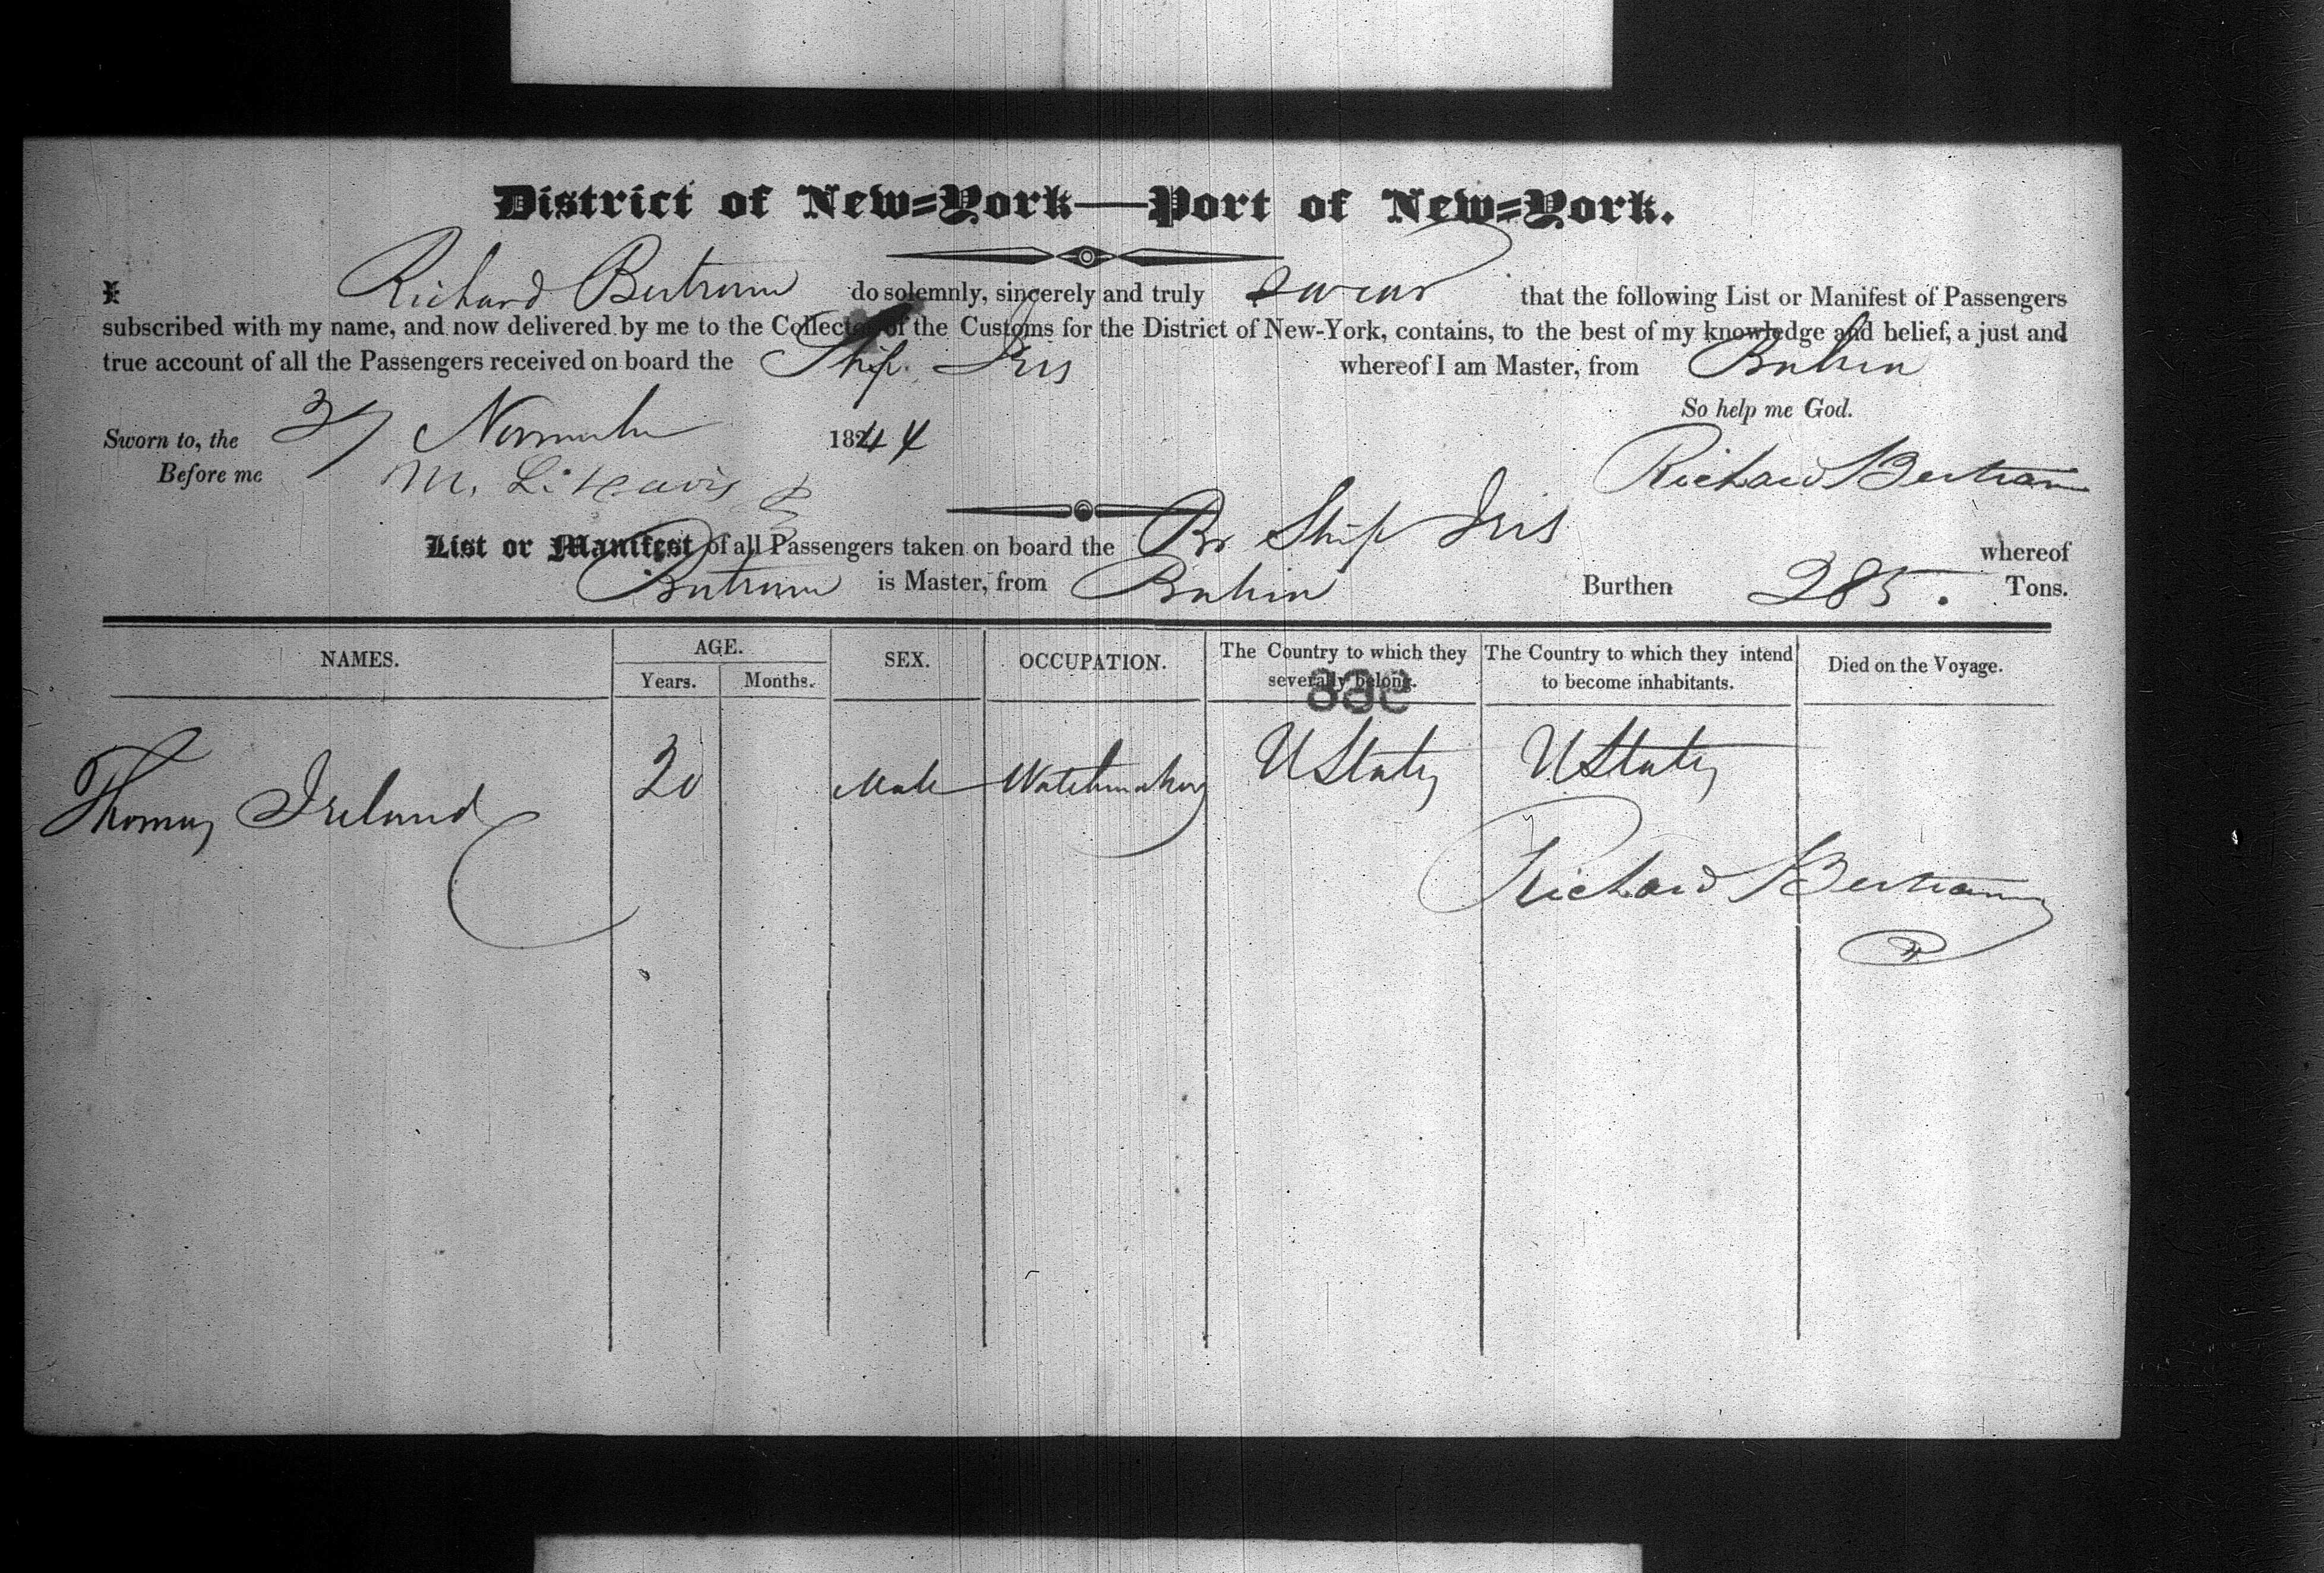 District of New-York—Port of New-York.
I Richard Bertram do solemnly, sincerely and truly swear that the following List or Manifest of Passengers
subscribed with my name, and now delivered by me to the Collector of the Customs for the District of New-York, contains, to the best of my knowledge and belief, a just and
true account of all the Passengers received on board the Ship Iris whereof I am Master, from Bahia
So help me God.
Sworn to, the 27 November 1844
Richard Bertram
Before me
List or Manifest of all Passengers taken on board the Br Ship Iris whereof
Bertram is Master, from Bahia Burthen 285. Tons.
NAMES. AGE. SEX. OCCUPATION. The Country to which they severally belong. The Country to which they intend to become inhabitants. Died on the Voyage.
Years. Months.
Thomas Ireland 20 Male Watchmaker U States U States
Richard Bertram